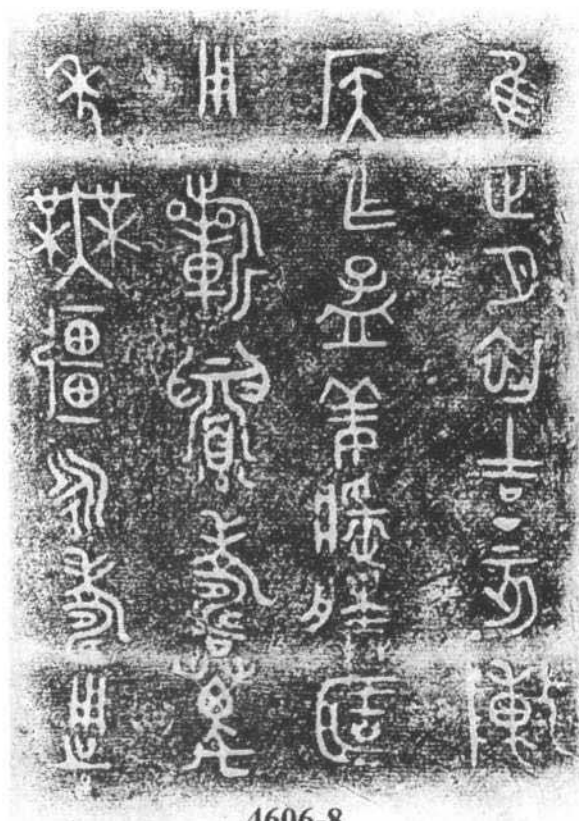 隹正月初吉丁亥陳
侯乍孟姜匡
用眉壽萬
年無疆永壽用之
4606·8